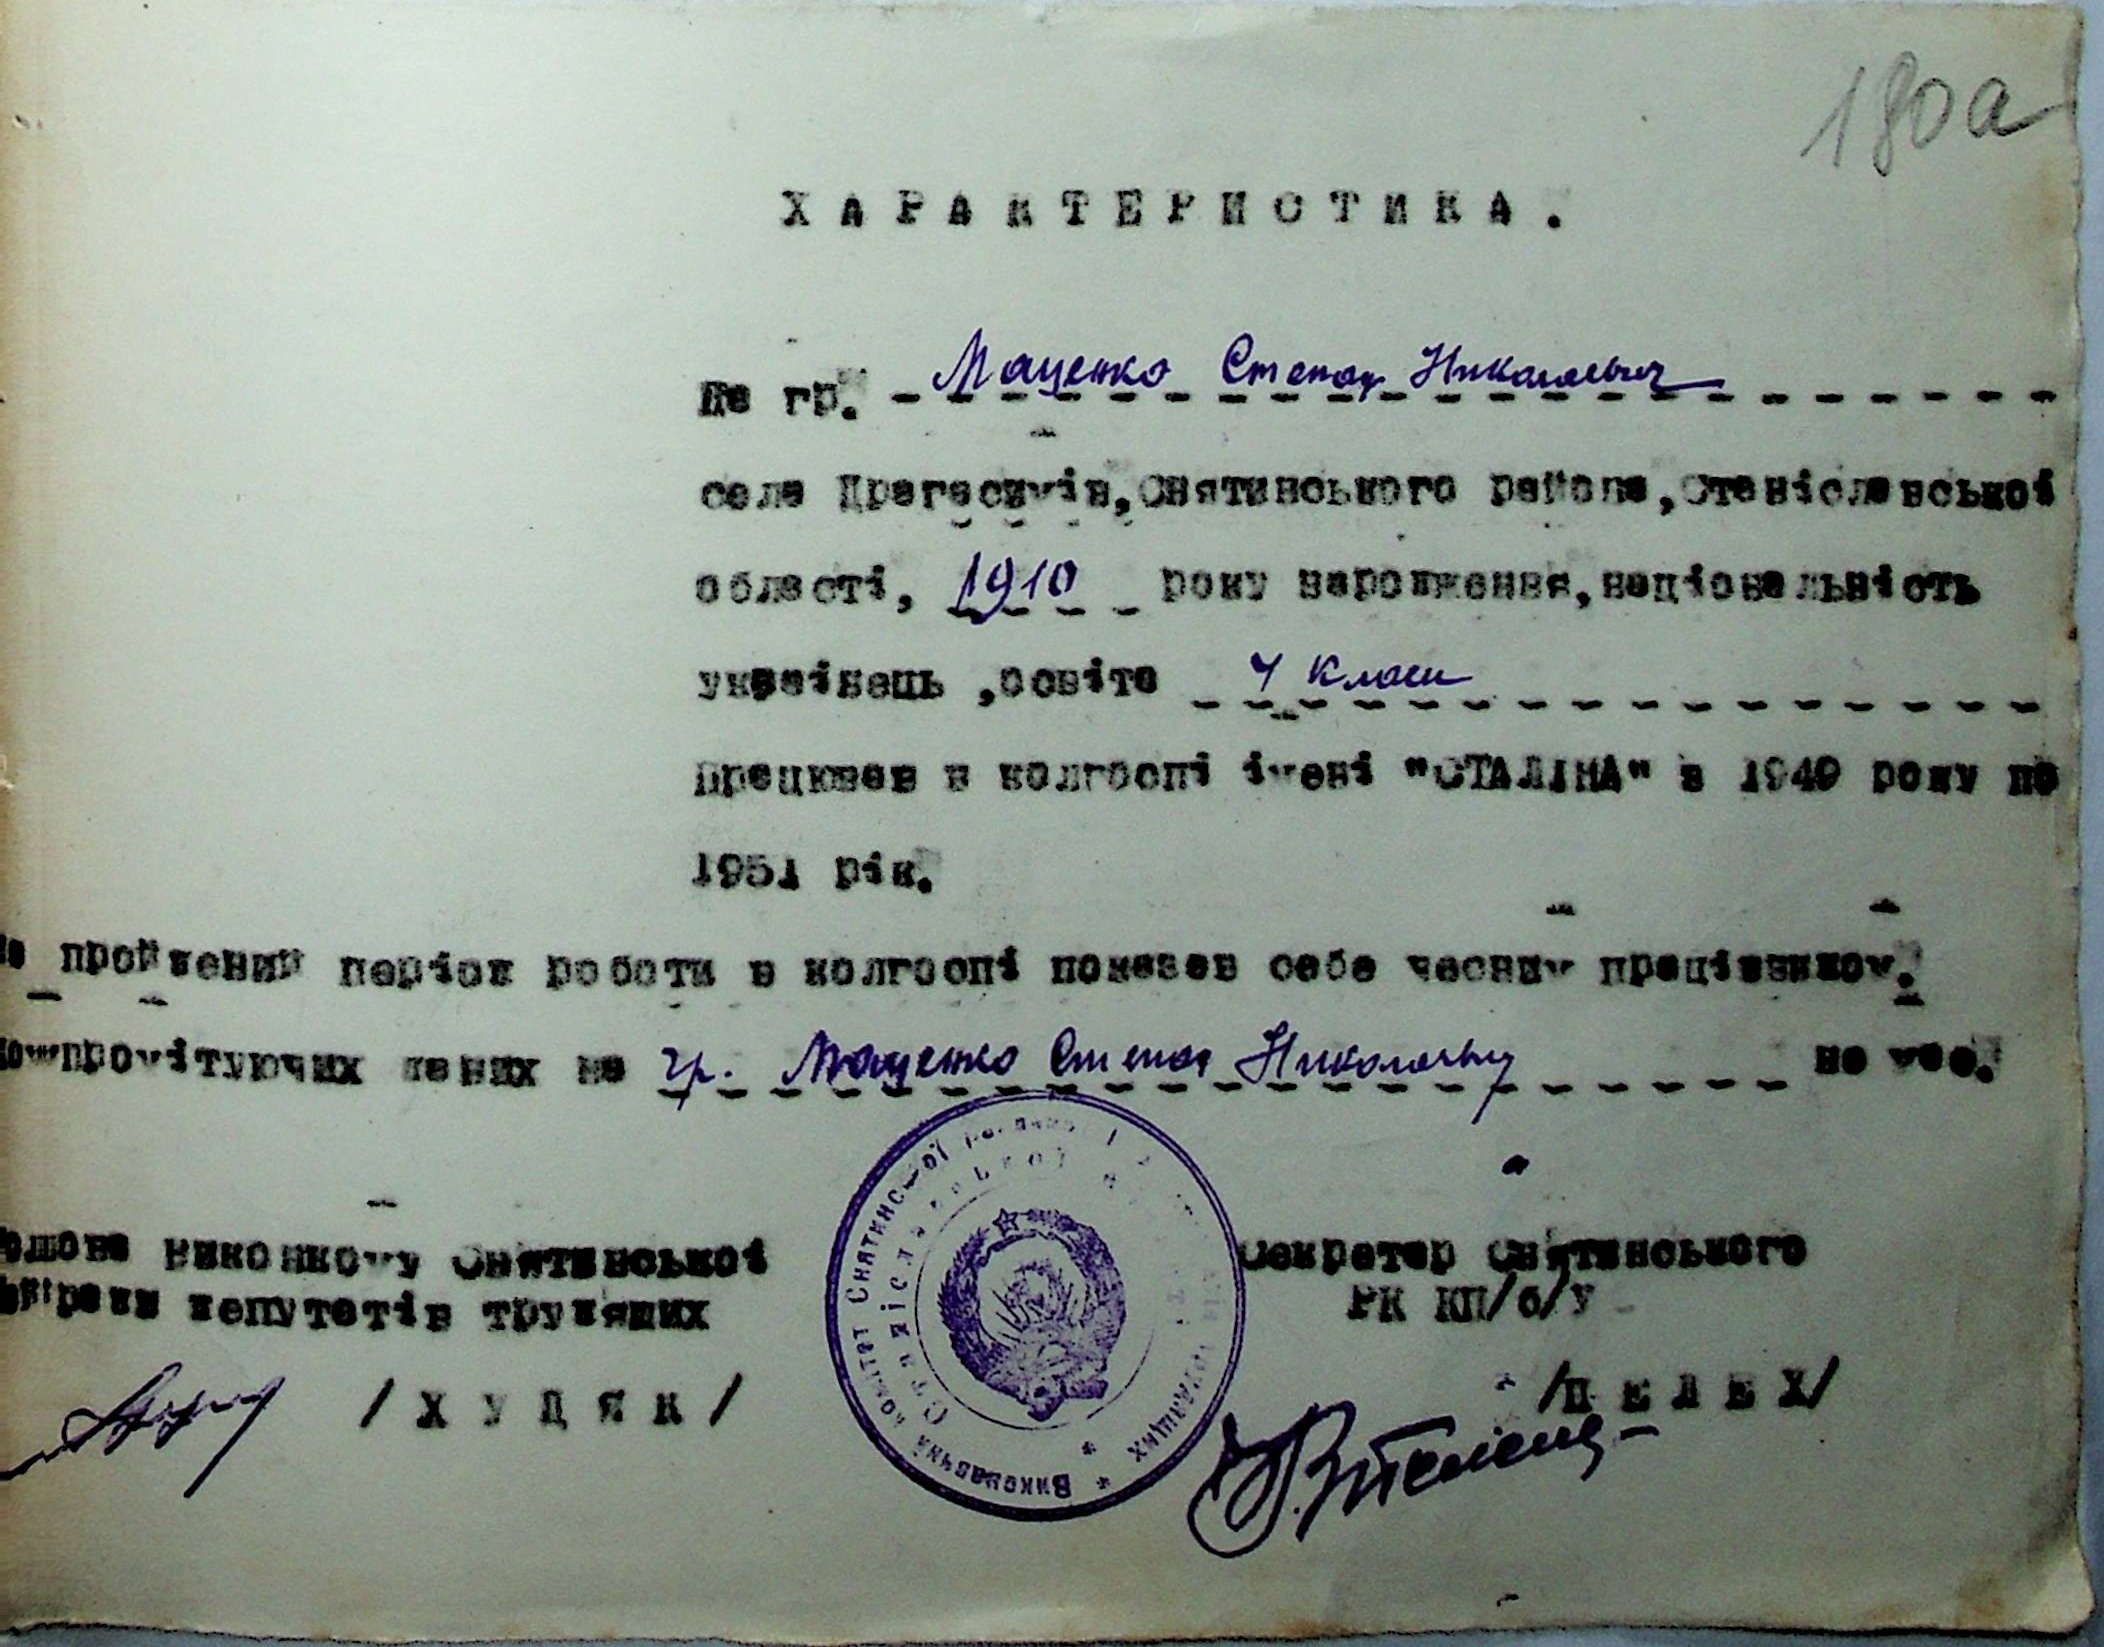 180а
ХАРАКТЕРИСТИКА.
На гр. Маценко Степан Николаевич
села Драгасимів, Снятинського района, Станіславської
області, 1910 року народження, національність
українець, освіта 4 класи
Працював в колгоспі імені "СТАЛІНА" з 1949 року по
1951 рік.
За пройдений період роботи в колгоспі показав себе чесним працівником.
Компромітуючих даних на гр. Маценко Степан Николаевич не має.
Голова Виконкому Снятинської
райради депутатів трудящих
Секретар Снятинського
РК КП/б/У
/ХУДЯК/
/ПЕЛЕХ/
Виконавчий комітет Снятинської районної трудящих
Станіславської